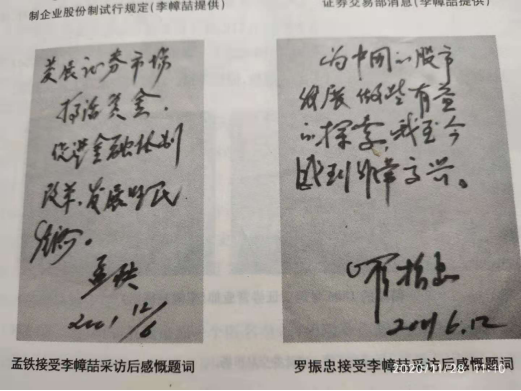 制企业股份制试行规定(李幛喆提供)
证券交易部消息(李幛喆提供)
发展证券市场
搞活资金.
促进金融体制
改革,发展国民
经济。
孟铁
2001 12/6
为中国的股市
发展做些有益
的探索,我至今
感到非常高兴。
罗振忠
2001.6.12
孟铁接受李幛喆采访后感慨题词
罗振忠接受李幛喆采访后感慨题词